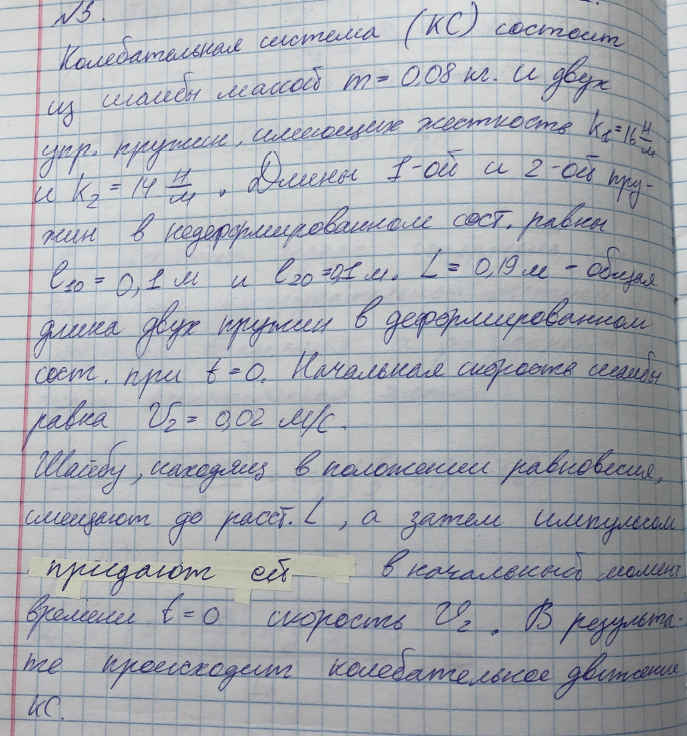 №3.
Колебательная система (КС) состоит
из шайбы массой m = 0,08 кг. и двух
упр. пружин, имеющих жесткость k₁=16 Н/м
и k₂ = 14 Н/м. Длины 1-ой и 2-ой пру-
жин в недеформированном сост. равны
l₁₀ = 0,1 м и l₂₀=0,1 м. L = 0,19 м - общая
длина двух пружин в деформированном
сост. при t=0. Начальная скорость шайбы
равна V₂ = 0,02 м/с.
Шайбу, находящ в положении равновесия,
смещают до расст. L, а затем импульсом
придают ей в начальный момент
времени t=0 скорость V₂. В результа-
те происходит колебательное движение
КС.